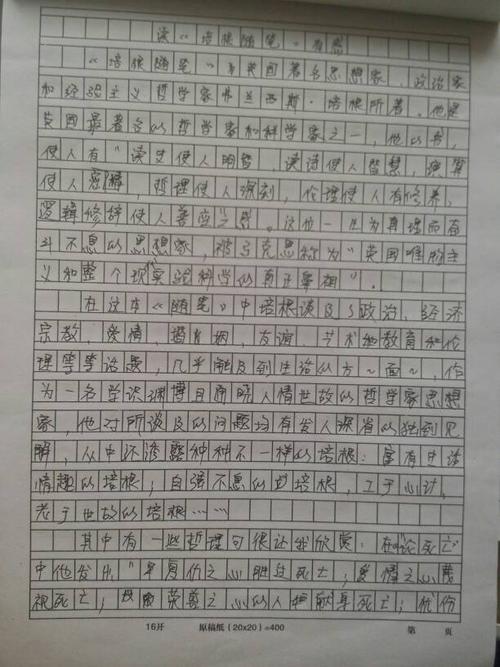 读《培根随笔》有感
《培根随笔》为英国著名思想家、政治家
和经验主义哲学家弗兰西斯·培根所著。他是
英国最著名的哲学家和科学家之一，他的书，
使人有"读史使人明智，读诗使人智慧，演算
使人密，哲理使人深刻，伦理使人有修养，
逻辑修辞使人善应"之感。这位一生为真理而奋
斗不息的思想家，被马克思称为"英国唯物主
义和整个现实验科学的真正鼻祖"。
在这本《随笔》中培根谈及了政治，经济
宗教，爱情，婚姻，友谊，艺术和教育和伦
理等等话题，几乎触及到生活的方方面面，作
为一名学识渊博且通晓人情世故的哲学家思想
家，他对所谈及的问题均有发人深省的独到见
解，从中还透露种种不一样的培根：富有生活
情趣的培根；自强不息的培根，工于心计，
老于世故的培根……
其中有一些哲理句很让我欣赏：在"论死亡"
中他发出"复仇之心胜过死亡；爱情之心蔑
视死亡；荣誉之心的人献身死亡；忧伤
16开 原稿纸（20x20）=400 第 页